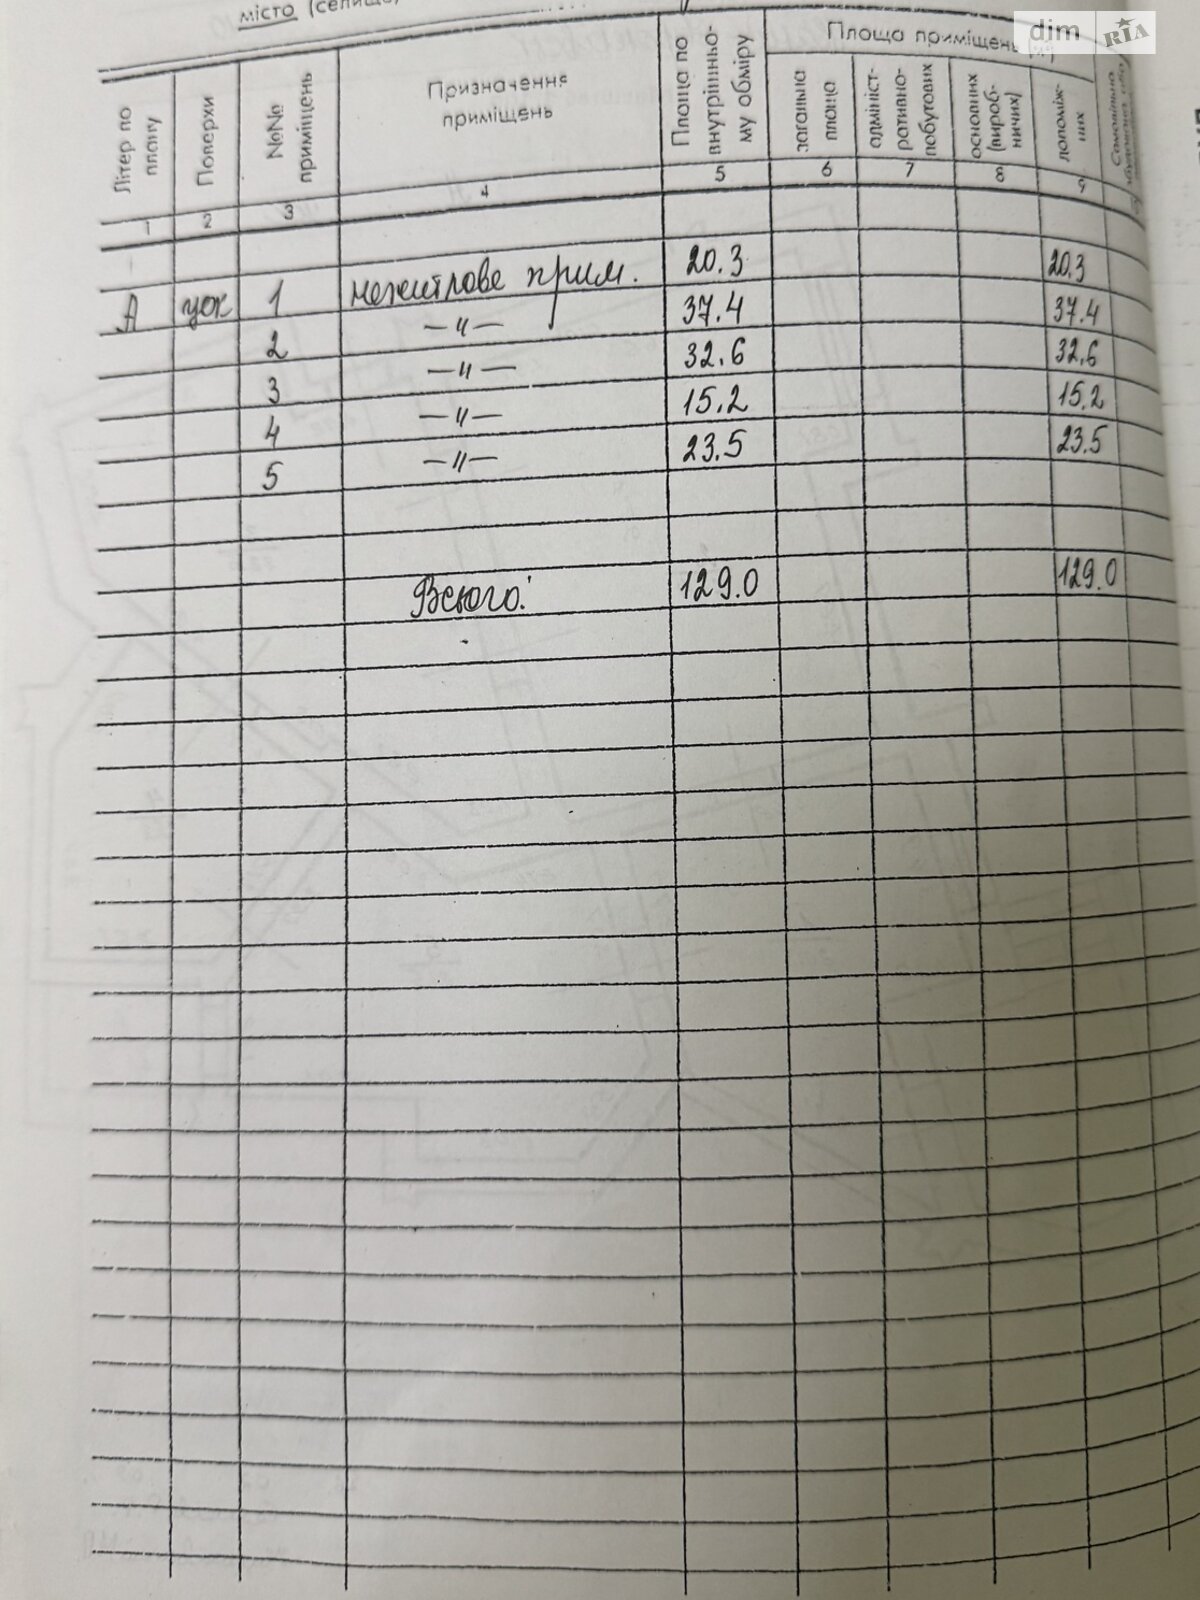 місто (селище)
Літер по плану
Поверхи
№№ приміщень
Призначення приміщень
Площа по внутрішньо-му обміру
Площа приміщень
загальна площа
адмініст-ративно-побутових
основних (вироб-ничих)
допоміж-них
1 2 3 4 5 6 7 8 9
А цок 1 нежитлове прим. 20.3 20.3
2 —"— 37.4 37.4
3 —"— 32.6 32.6
4 —"— 15.2 15.2
5 —"— 23.5 23.5
Всього: 129.0 129.0
dim RIA